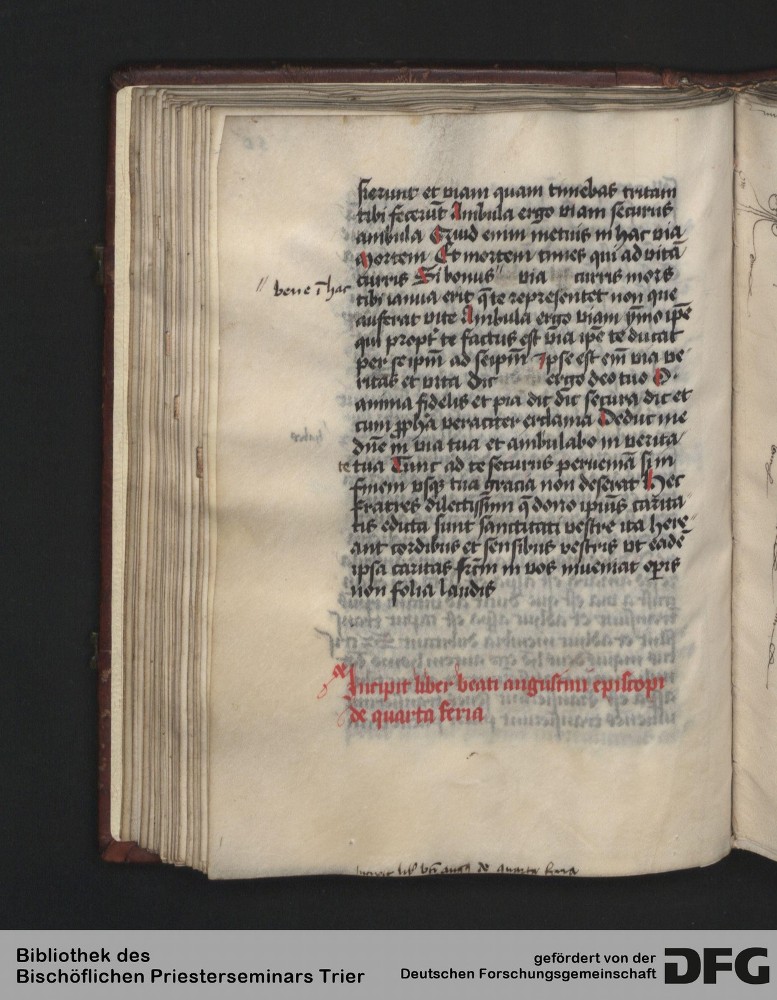 sierunt et viam quam timebas tritam
tibi fecerūt Ambula ergo viam securus
ambula Quid enim metuis in hac via
Mortem Et mortem times qui ad vitā
curris Si bonus" via curris mors
" bene ī hac
tibi ianua erit q̄ te representet non que
auferat vite Ambula ergo viam ymo ip̄e
qui propt' te factus est via ip̄e te ducat
per seip̄m ad seip̄m Ipse est em̄ via ve
ritas et vita dic ergo deo tuo O
anima fidelis et pia dic dic secura dic et
cum ꝓpha veraciter exclama Deduc me
dn̄e in via tua et ambulabo in verita
te tua Tunc ad te securus perveniā si in
finem usqꝫ tua gracia non deserat Hec
fratres dilectissīm q̄ dono ipius carita
tis edita sunt sanctitati vestre ita here
ant cordibus et sensibus vestris ut eadē
ipsa caritas frc̄m in vos inveniat op̄is
non folia laudis
Incipit liber beati augustini episcopi
de quarta feria
Incipit lib' bt̄i aug' de quarta feria
Bibliothek des
Bischöflichen Priesterseminars Trier
gefördert von der
Deutschen Forschungsgemeinschaft
DFG